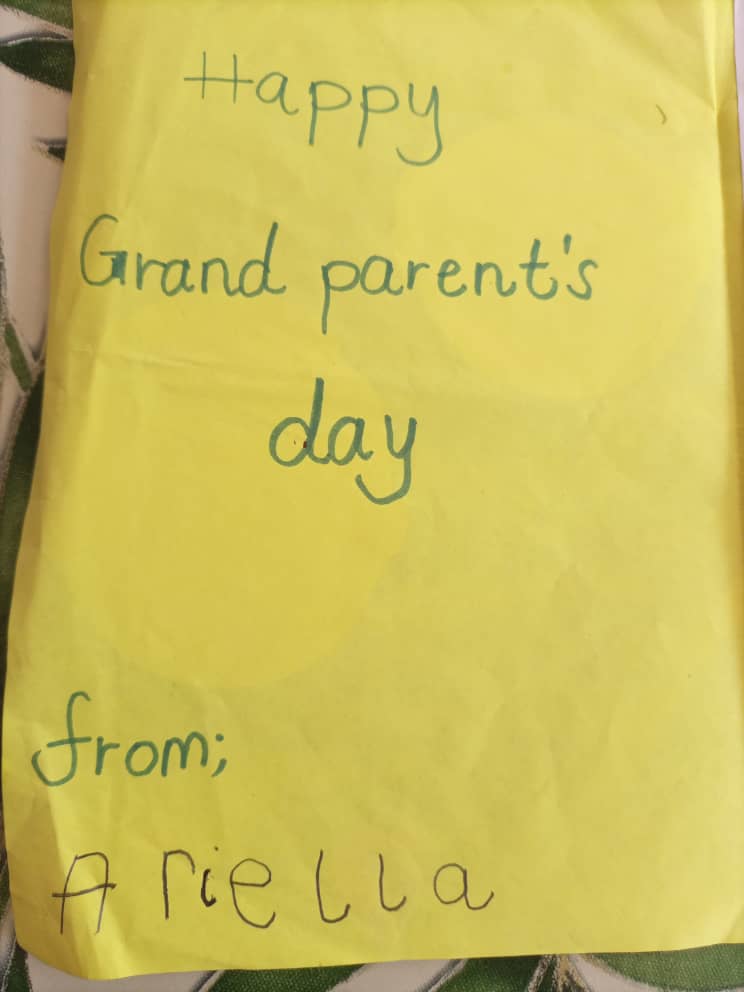 Happy
Grand parent's
day
from;
Ariella